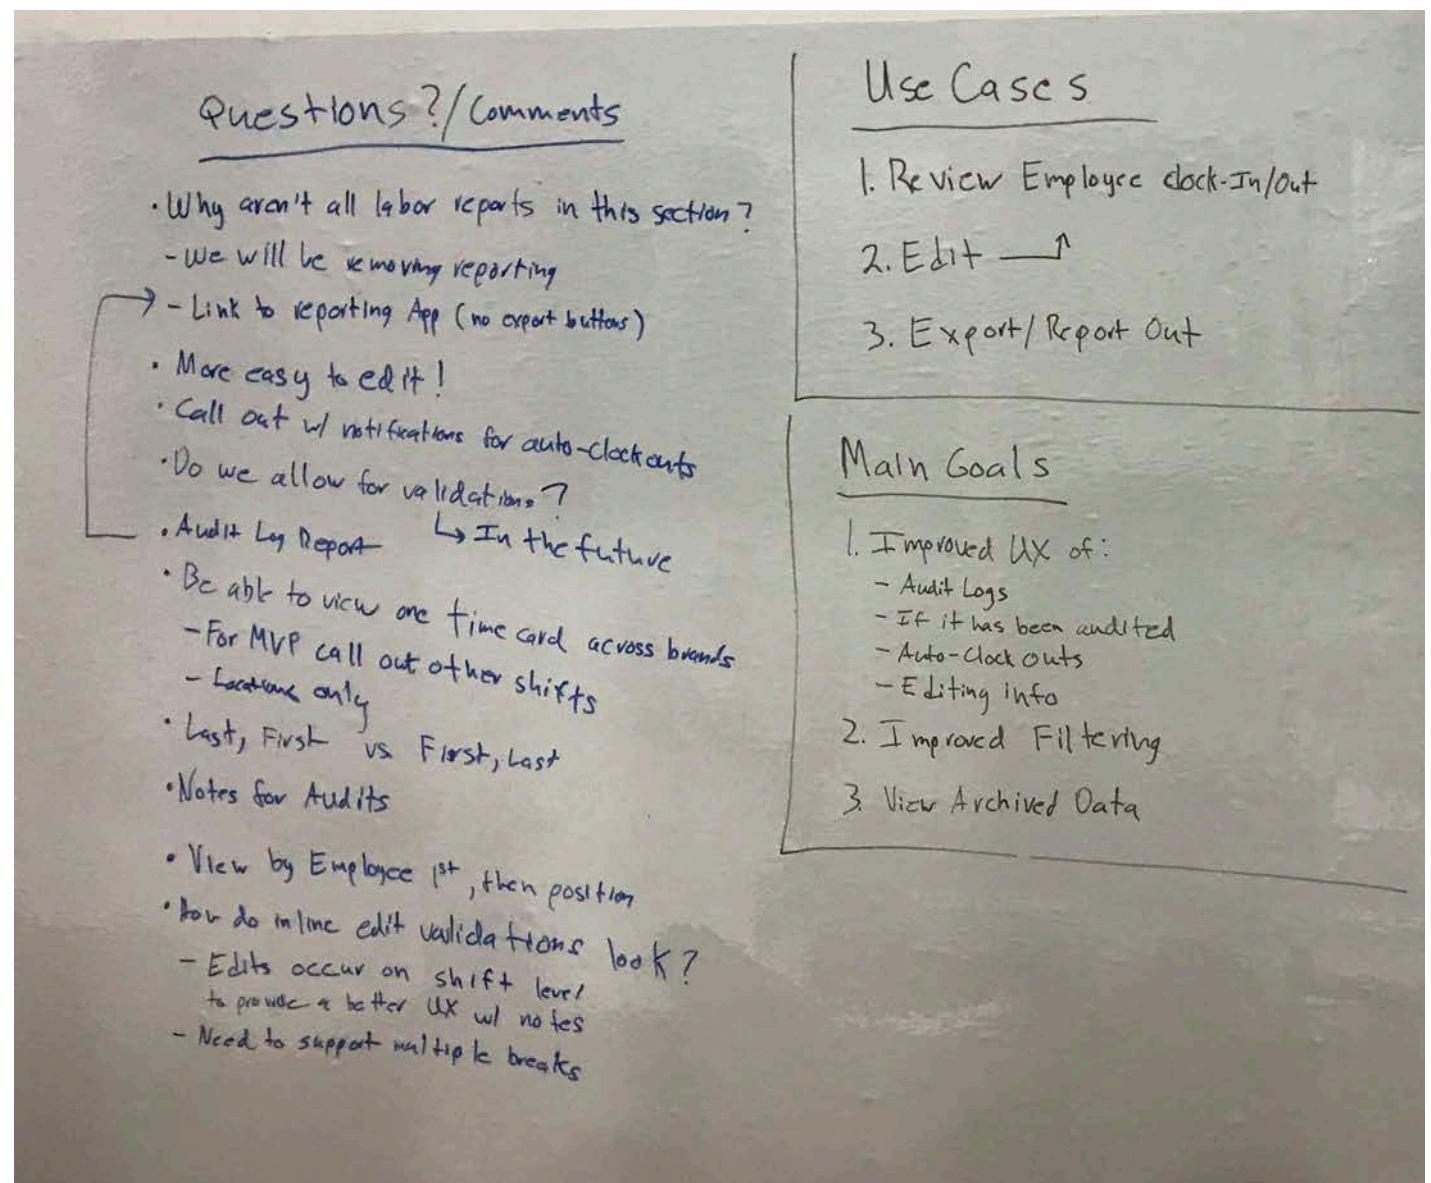 Questions?/Comments
• Why aren't all labor reports in this section?
- We will be removing reporting
- Link to reporting App (no export buttons)
• More easy to edit!
• Call out w/ notifications for auto-clockouts
• Do we allow for validations?
↳ In the future
• Audit Log Report
• Be able to view one time card across brands
- For MVP call out other shifts
- Locations only
• Last, First vs First, Last
• Notes for Audits
• View by Employee 1st, then position
• How do inline edit validations look?
- Edits occur on shift level
to provide a better UX w/ notes
- Need to support multiple breaks
Use Cases
1. Review Employee clock-In/Out
2. Edit
3. Export/Report Out
Main Goals
1. Improved UX of:
- Audit Logs
- If it has been audited
- Auto-Clock outs
- Editing info
2. Improved Filtering
3. View Archived Data